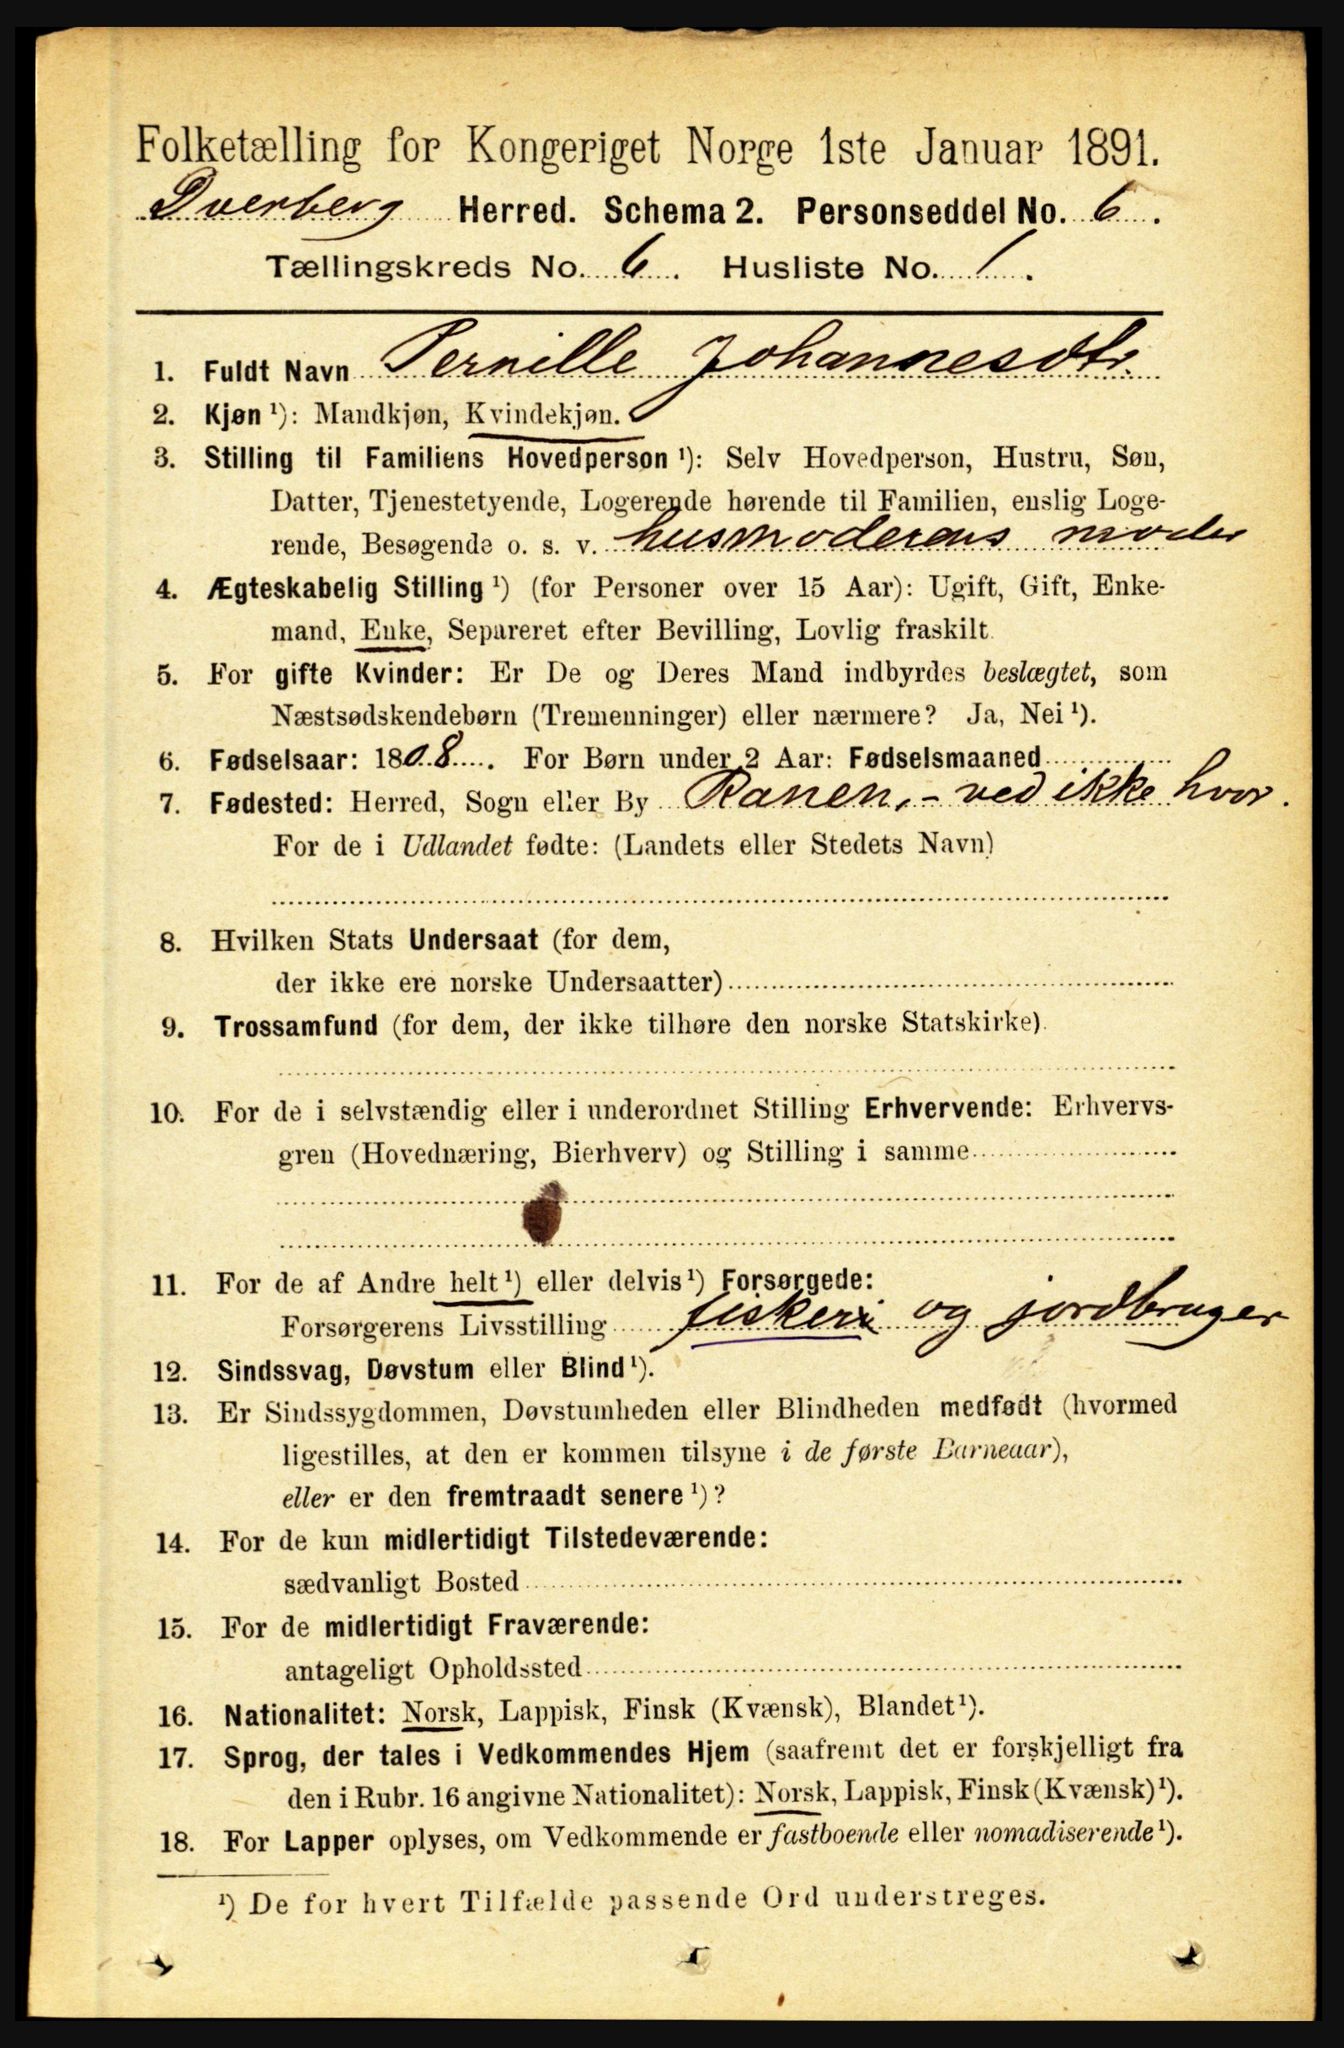 Folketælling for Kongeriget Norge 1ste Januar 1891.
Dverberg Herred. Schema 2. Personseddel No. 6.
Tællingskreds No. 6. Husliste No. 1.
1. Fuldt Navn Pernille Johannesdtr.
2. Kjøn ¹): Mandkjøn, Kvindekjøn.
3. Stilling til Familiens Hovedperson ¹): Selv Hovedperson, Hustru, Søn,
Datter, Tjenestetyende, Logerende hørende til Familien, enslig Loge-
rende, Besøgende o. s. v. husmoderens moder
4. Ægteskabelig Stilling ¹) (for Personer over 15 Aar): Ugift, Gift, Enke-
mand, Enke, Separeret efter Bevilling, Lovlig fraskilt.
5. For gifte Kvinder: Er De og Deres Mand indbyrdes beslægtet, som
Næstsødskendebørn (Tremenninger) eller nærmere? Ja, Nei ¹).
6. Fødselsaar: 1808. For Børn under 2 Aar: Fødselsmaaned
7. Fødested: Herred, Sogn eller By Ranen, - ved ikke hvor.
For de i Udlandet fødte: (Landets eller Stedets Navn)
8. Hvilken Stats Undersaat (for dem,
der ikke ere norske Undersaatter)
9. Trossamfund (for dem, der ikke tilhøre den norske Statskirke).
10. For de i selvstændig eller i underordnet Stilling Erhvervende: Erhvervs-
gren (Hovednæring, Bierhverv) og Stilling i samme
11. For de af Andre helt ¹) eller delvis ¹) Forsørgede:
Forsørgerens Livsstilling fiskeri og jordbruger
12. Sindssvag, Døvstum eller Blind ¹).
13. Er Sindssygdommen, Døvstumheden eller Blindheden medfødt (hvormed
ligestilles, at den er kommen tilsyne i de første Barneaar),
eller er den fremtraadt senere ¹)?
14. For de kun midlertidigt Tilstedeværende:
sædvanligt Bosted
15. For de midlertidigt Fraværende:
antageligt Opholdssted
16. Nationalitet: Norsk, Lappisk, Finsk (Kvænsk), Blandet ¹).
17. Sprog, der tales i Vedkommendes Hjem (saafremt det er forskjelligt fra
den i Rubr. 16 angivne Nationalitet): Norsk, Lappisk, Finsk (Kvænsk) ¹).
18. For Lapper oplyses, om Vedkommende er fastboende eller nomadiserende ¹).
¹) De for hvert Tilfælde passende Ord understreges.